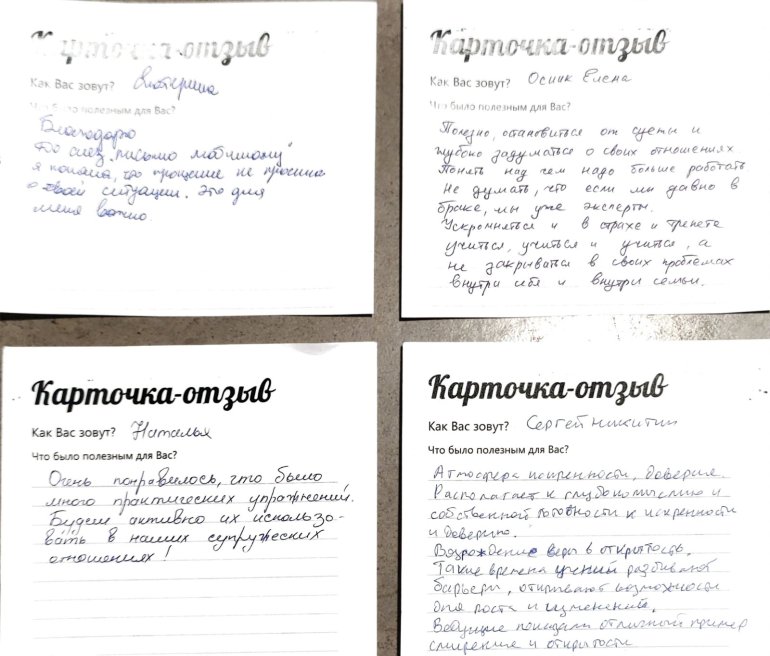 Карточка-отзыв
Как Вас зовут? Екатерина
Что было полезным для Вас?
Благодарю
До слез "письмо любимому"
я поняла, что прощение не просила
о своей ситуации. Это для
меня важно.
Карточка-отзыв
Как Вас зовут? Осник Елена
Что было полезным для Вас?
Полезно, остановиться от суеты и
глубоко задуматься о своих отношениях
Понять над чем надо больше работать
Не думать, что если мы давно в
браке, мы уже эксперты.
Ускромняться и в страхе и трепете
учиться, учиться и учиться, а
не закрываться в своих проблемах
внутри себя и внутри семьи.
Карточка-отзыв
Как Вас зовут? Наталья
Что было полезным для Вас?
Очень понравилось, что было
много практических упражнений.
Будем активно их использо-
вать в наших супружеских
отношениях!
Карточка-отзыв
Как Вас зовут? Сергей Никитин
Что было полезным для Вас?
Атмосфера искренности, доверия.
Располагает к глубокомыслию и
собственной готовности к искренности
и доверию.
Возрождение веры в открытость.
Такие времена учений разбивают
барьеры, открывают возможности
для роста и изменений.
Ведущие показали отличный пример
смирение и открытости